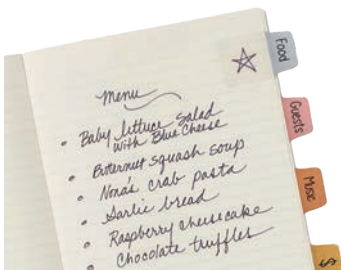 Menu
• Baby lettuce salad
with Blue Cheese
• Butternut squash soup
• Nona's crab pasta
• Garlic bread
• Raspberry cheesecake
• Chocolate truffles
Food
Guests
Music
$